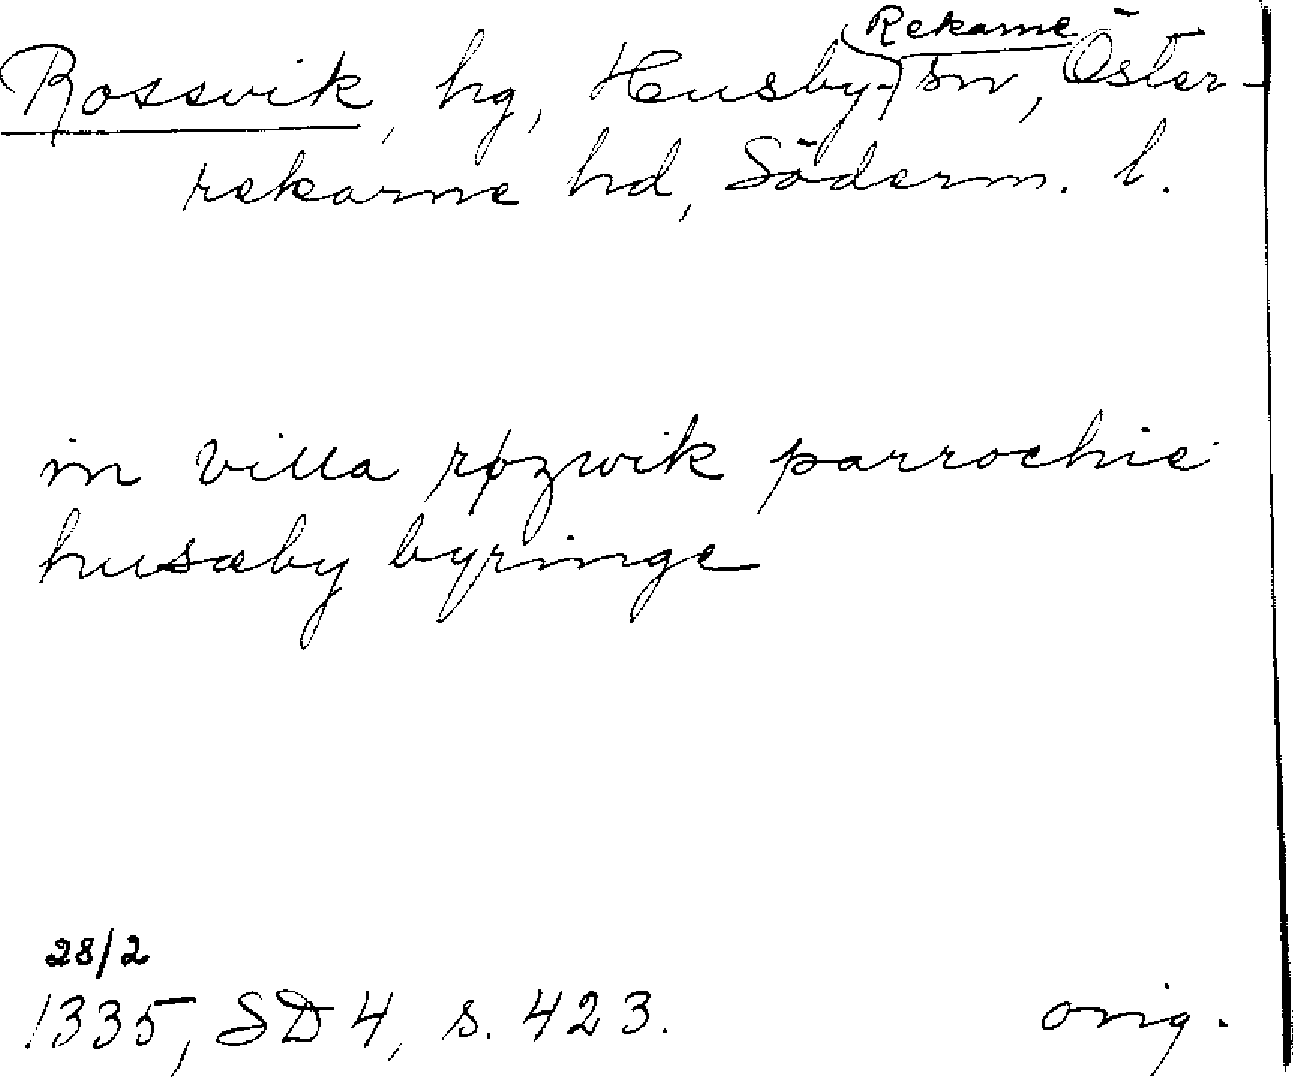 Rossvik, hg, Husby-Rekarne sn, Öster-
rekarne hd, Söderm. l.
in villa røzwik parrochie
husæby byringe
28/2
1335, SD 4, s. 423. orig.